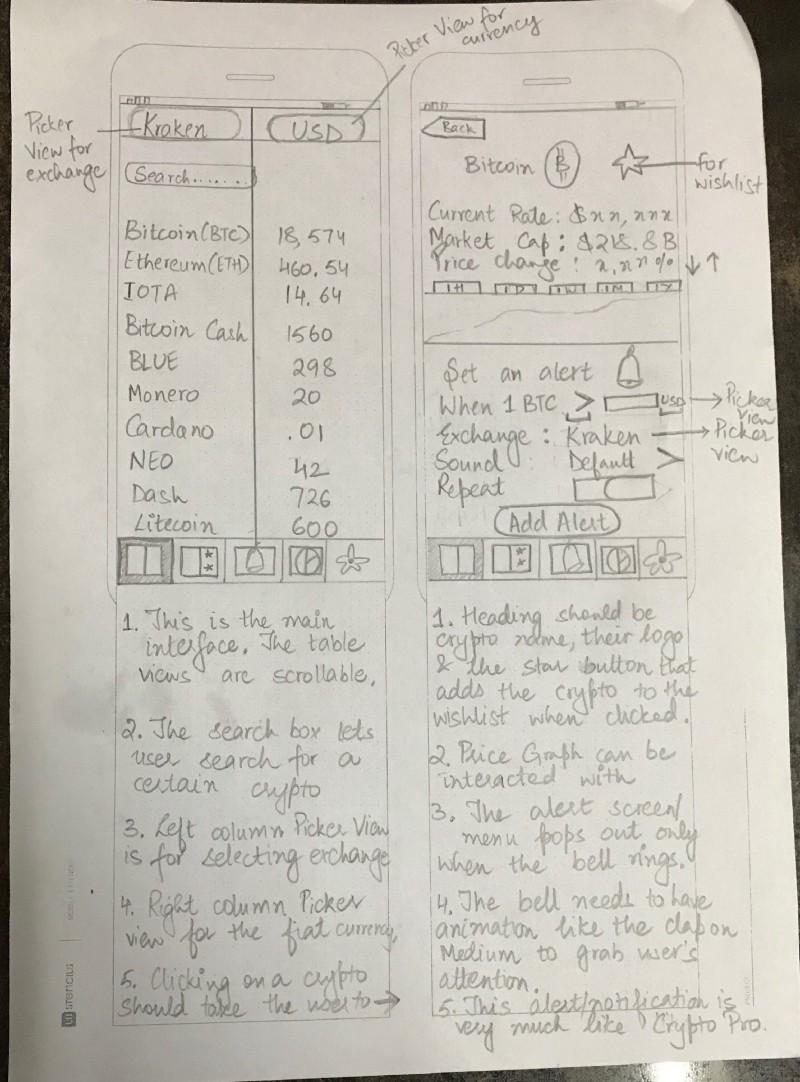 Picker View for
currency
Picker
View for
exchange
Kraken
USD
Search.......
Bitcoin(BTC) 18,574
Ethereum(ETH) 460.54
IOTA 14.64
Bitcoin Cash 1560
BLUE 298
Monero 20
Cardano .01
NEO 42
Dash 726
Litecoin 600
1. This is the main
interface. The table
views are scrollable.
2. The search box lets
user search for a
certain crypto
3. Left column Picker View
is for selecting exchange
4. Right column Picker
view for the fiat currency.
5. Clicking on a crypto
should take the user to →
Back
Bitcoin
for
wishlist
Current Rate: $xx,xxx
Market Cap: $218.8B
Price change: x,xx% ↓↑
1H 1D 1W 1M 1Y
Set an alert
When 1 BTC > USD → Picker
View
Exchange: Kraken → Picker
view
Sound Default >
Repeat
Add Alert
1. Heading should be
crypto name, their logo
& the star button that
adds the crypto to the
wishlist when clicked.
2. Price Graph can be
interacted with
3. The alert screen/
menu pops out only
when the bell rings.
4. The bell needs to have
animation like the clap on
Medium to grab user's
attention.
5. This alert/notification is
very much like Crypto Pro.
STENCILS